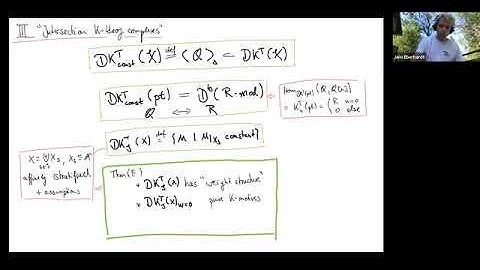 III "Intersection K-theory complexes"
DK^T_const(X) def= <Q>_Δ ⊂ DK^T(X)
DK^T_const(pt) = D^b(R-mod)
Q ↔ R
Hom (Q, Q[n])
= K (pt) = { R n=0
0 else
DK^T_S(X) def= {M | M|X_s constant}
X = X_s, X_s
affinely stratified
+ assumptions
Thm (E)
• DK^T_S(X) has "weight structure"
• DK^T_S(X)_w=0 pure K-motives
Jens Eberhardt